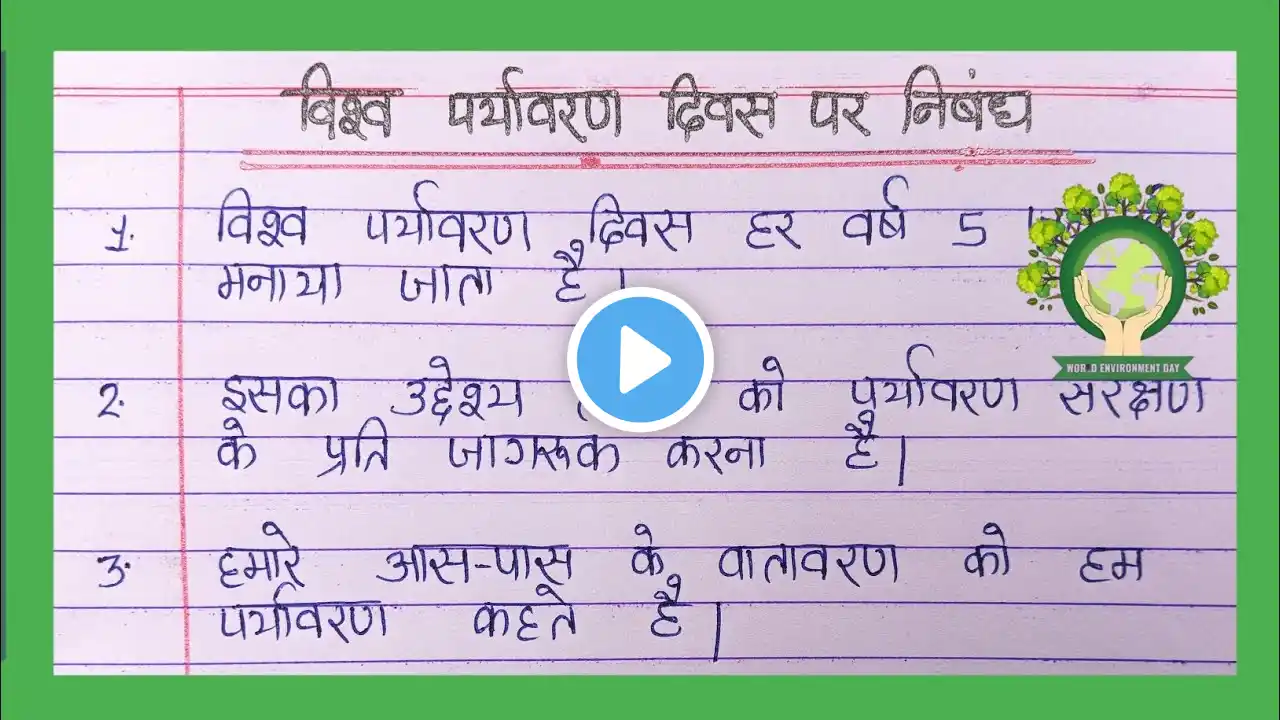 विश्व पर्यावरण दिवस पर निबंध
1. विश्व पर्यावरण दिवस हर वर्ष 5
मनाया जाता है।
WORLD ENVIRONMENT DAY
2. इसका उद्देश्य को पर्यावरण सरक्षण
के प्रति जागरूक करना है।
3. हमारे आस-पास के वातावरण को हम
पर्यावरण कहते है।